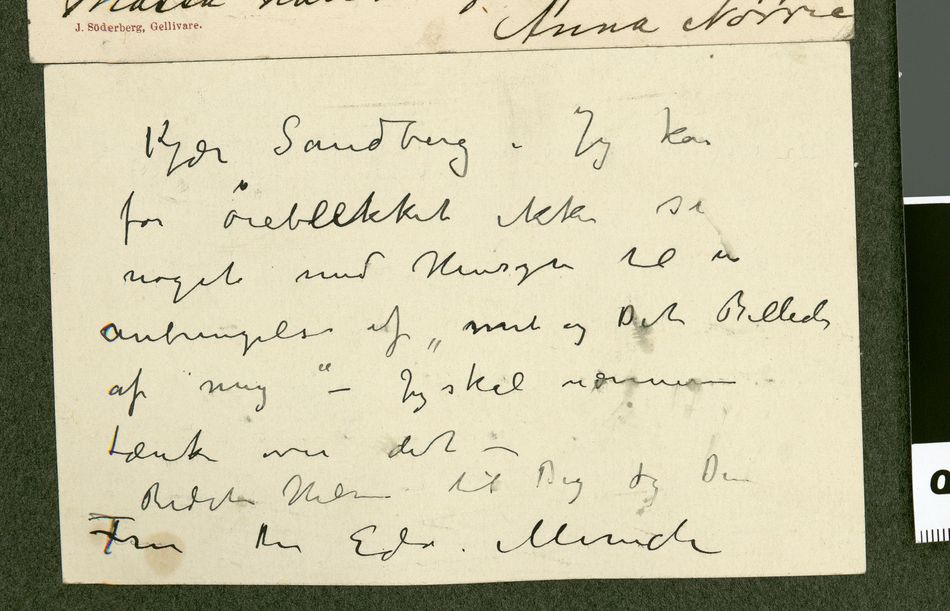 J. Söderberg, Gellivare.
Anna Norrie
Kjær Sandberg. Jeg kan
for öieblikket ikke si
noget med Hensyn til en
anbringelse af „mit og Dit Billede
af mig“ – Jeg skal nærmere
tænke over det –
Bedste Hilsen til Dig og Din
Frue Din Edv. Munch